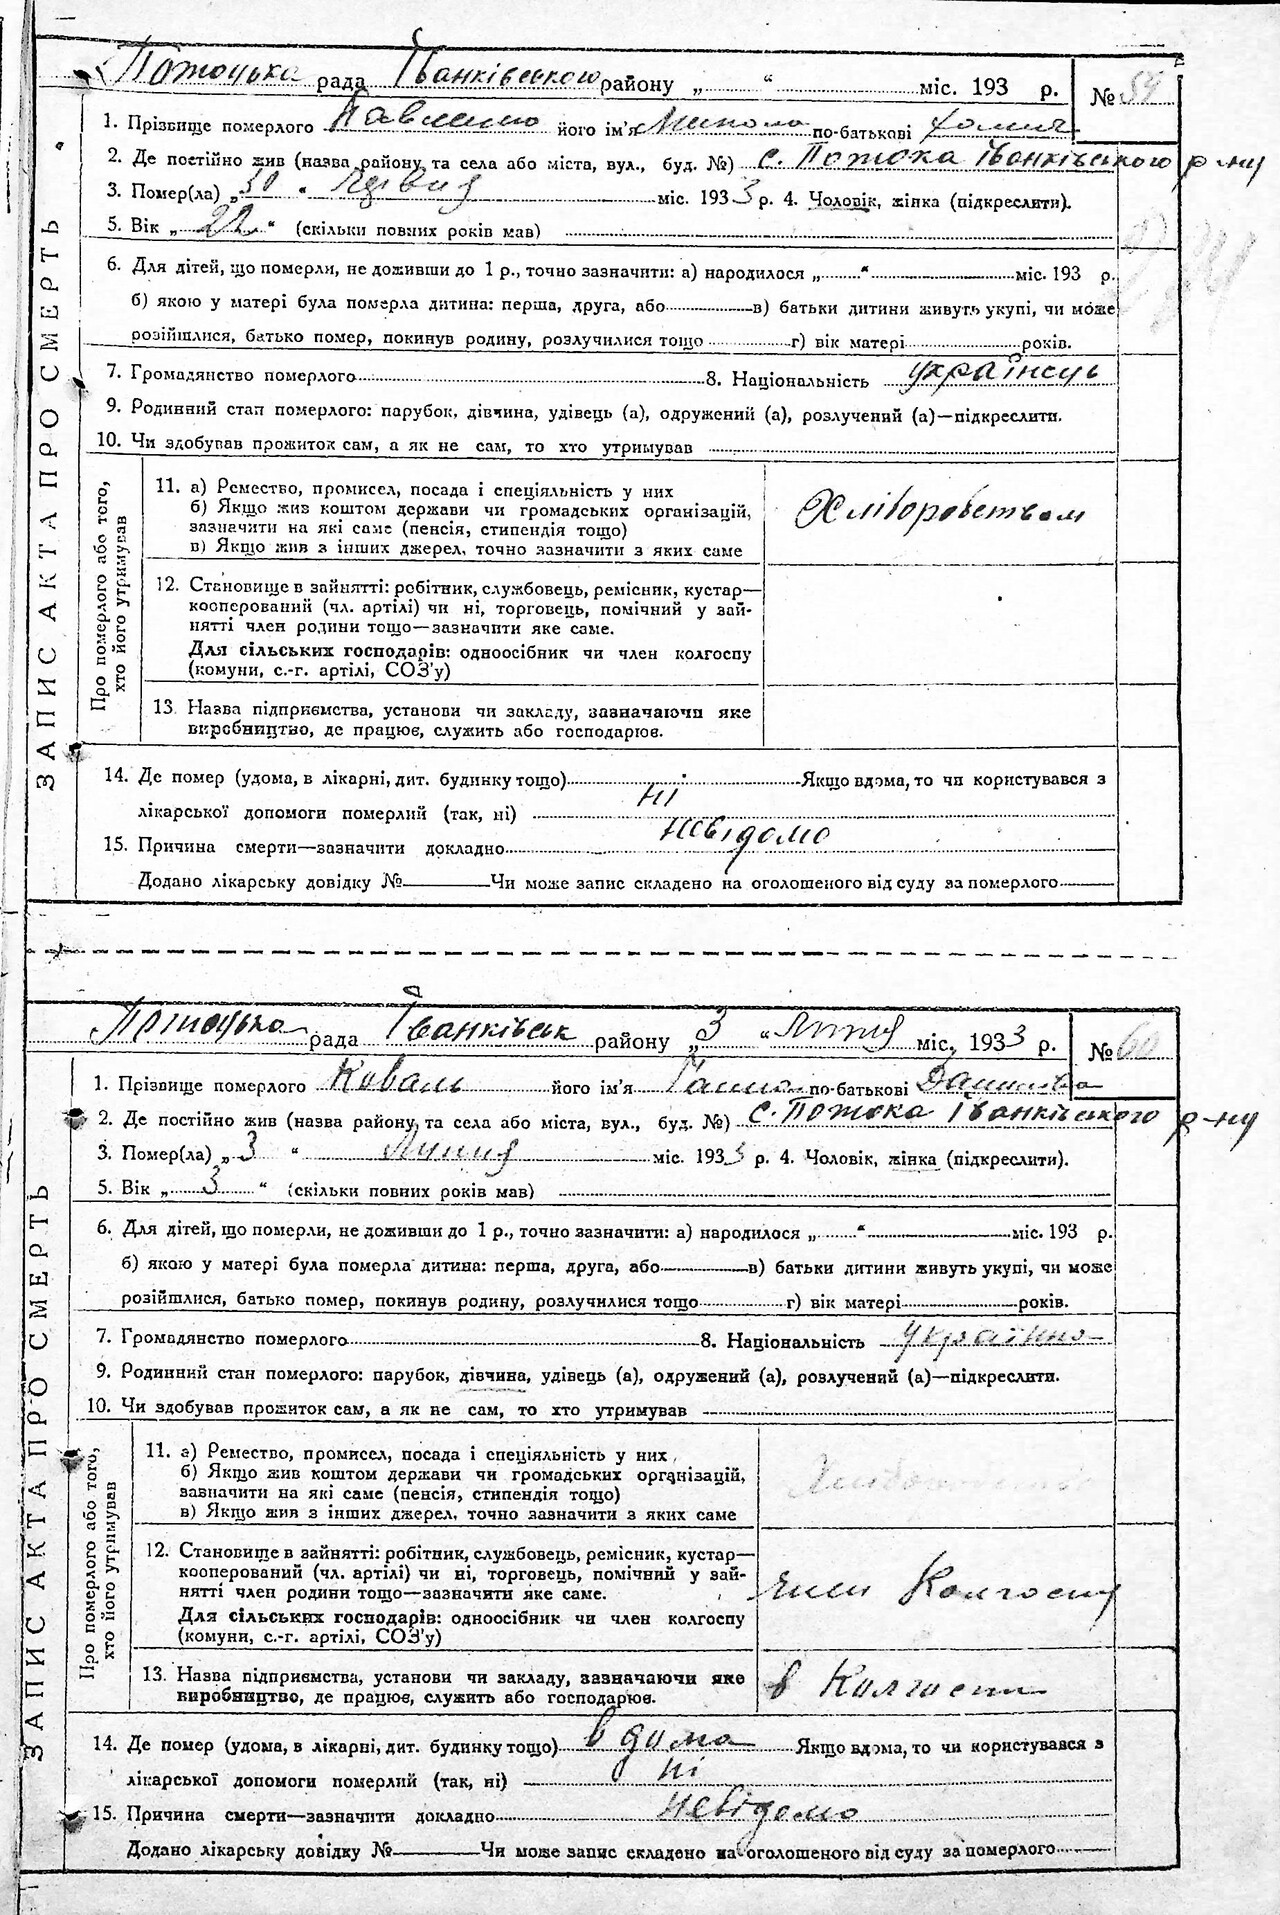 Потоцька рада Іванківського району „ “ міс. 193 р.
№ 54
ЗАПИС АКТА ПРО СМЕРТЬ
1. Прізвище померлого його ім'я Микола по-батькові Хомич
2. Де постійно жив (назва району та села або міста, вул., буд. №) с. Потока Іванківського р-ну
3. Помер(ла) „30 “ міс. 1933 р. 4. Чоловік, жінка (підкреслити).
5. Вік „ 22 “ (скільки повних років мав)
6. Для дітей, що померли, не доживши до 1 р., точно зазначити: а) народилося „ “ міс. 193 р.
б) якою у матері була померла дитина: перша, друга, або в) батьки дитини живуть укупі, чи може
розійшлися, батько помер, покинув родину, розлучилися тощо г) вік матері років.
7. Громадянство померлого 8. Національність українець
9. Родинний стап померлого: парубок, дівчина, удівець (а), одружений (а), розлучений (а)—підкреслити.
10. Чи здобував прожиток сам, а як не сам, то хто утримував
Про померлого або того,
хто його утримував
11. а) Ремество, промисел, посада і спеціяльність у них
б) Якщо жив коштом держави чи громадських організацій,
зазначити на які саме (пенсія, стипендія тощо)
в) Якщо жив з інших джерел, точно зазначити з яких саме
Хліборобством
12. Становище в зайнятті: робітник, службовець, ремісник, кустар—
кооперований (чл. артілі) чи ні, торговець, помічний у зай-
нятті член родини тощо—зазначити яке саме.
Для сільських господарів: одноосібник чи член колгоспу
(комуни, с.-г. артілі, СОЗ'у)
13. Назва підприємства, установи чи закладу, зазначаючи яке
виробництво, де працює, служить або господарює.
14. Де помер (удома, в лікарні, дит. будинку тощо) Якщо вдома, то чи користувався з
лікарської допомоги померлий (так, ні) ні
15. Причина смерти—зазначити докладно невідомо
Додано лікарську довідку № Чи може запис складено на оголошеного від суду за померлого
Потоцька рада Іванківськ району „3 “ Лютня міс. 1933 р.
№ 60
ЗАПИС АКТА ПРО СМЕРТЬ
1. Прізвище померлого Коваль його ім'я Ганна по-батькові
2. Де постійно жив (назва району та села або міста, вул., буд. №) с. Потока Іванківського р-ну
3. Помер(ла) „ 3 “ міс. 1933 р. 4. Чоловік, жінка (підкреслити).
5. Вік „ 3 “ (скільки повних років мав)
6. Для дітей, що померли, не доживши до 1 р., точно зазначити: а) народилося „ “ міс. 193 р.
б) якою у матері була померла дитина: перша, друга, або в) батьки дитини живуть укупі, чи може
розійшлися, батько помер, покинув родину, розлучилися тощо г) вік матері років.
7. Громадянство померлого 8. Національність
9. Родинний стан померлого: парубок, дівчина, удівець (а), одружений (а), розлучений (а)—підкреслити.
10. Чи здобував прожиток сам, а як не сам, то хто утримував
Про померлого або того,
хто його утримував
11. а) Ремество, промисел, посада і спеціяльність у них
б) Якщо жив коштом держави чи громадських організацій,
зазначити на які саме (пенсія, стипендія тощо)
в) Якщо жив з інших джерел, точно зазначити з яких саме
12. Становище в зайнятті: робітник, службовець, ремісник, кустар—
кооперований (чл. артілі) чи ні, торговець, помічний у зай-
нятті член родини тощо—зазначити яке саме.
Для сільських господарів: одноосібник чи член колгоспу
(комуни, с.-г. артілі, СОЗ'у)
член Колгоспу
13. Назва підприємства, установи чи закладу, зазначаючи яке
виробництво, де працює, служить або господарює.
в Колгоспи
14. Де помер (удома, в лікарні, дит. будинку тощо) в дома Якщо вдома, то чи користувався з
лікарської допомоги померлий (так, ні) ні
15. Причина смерти—зазначити докладно невідомо
Додано лікарську довідку № Чи може запис складено на оголошеного від суду за померлого